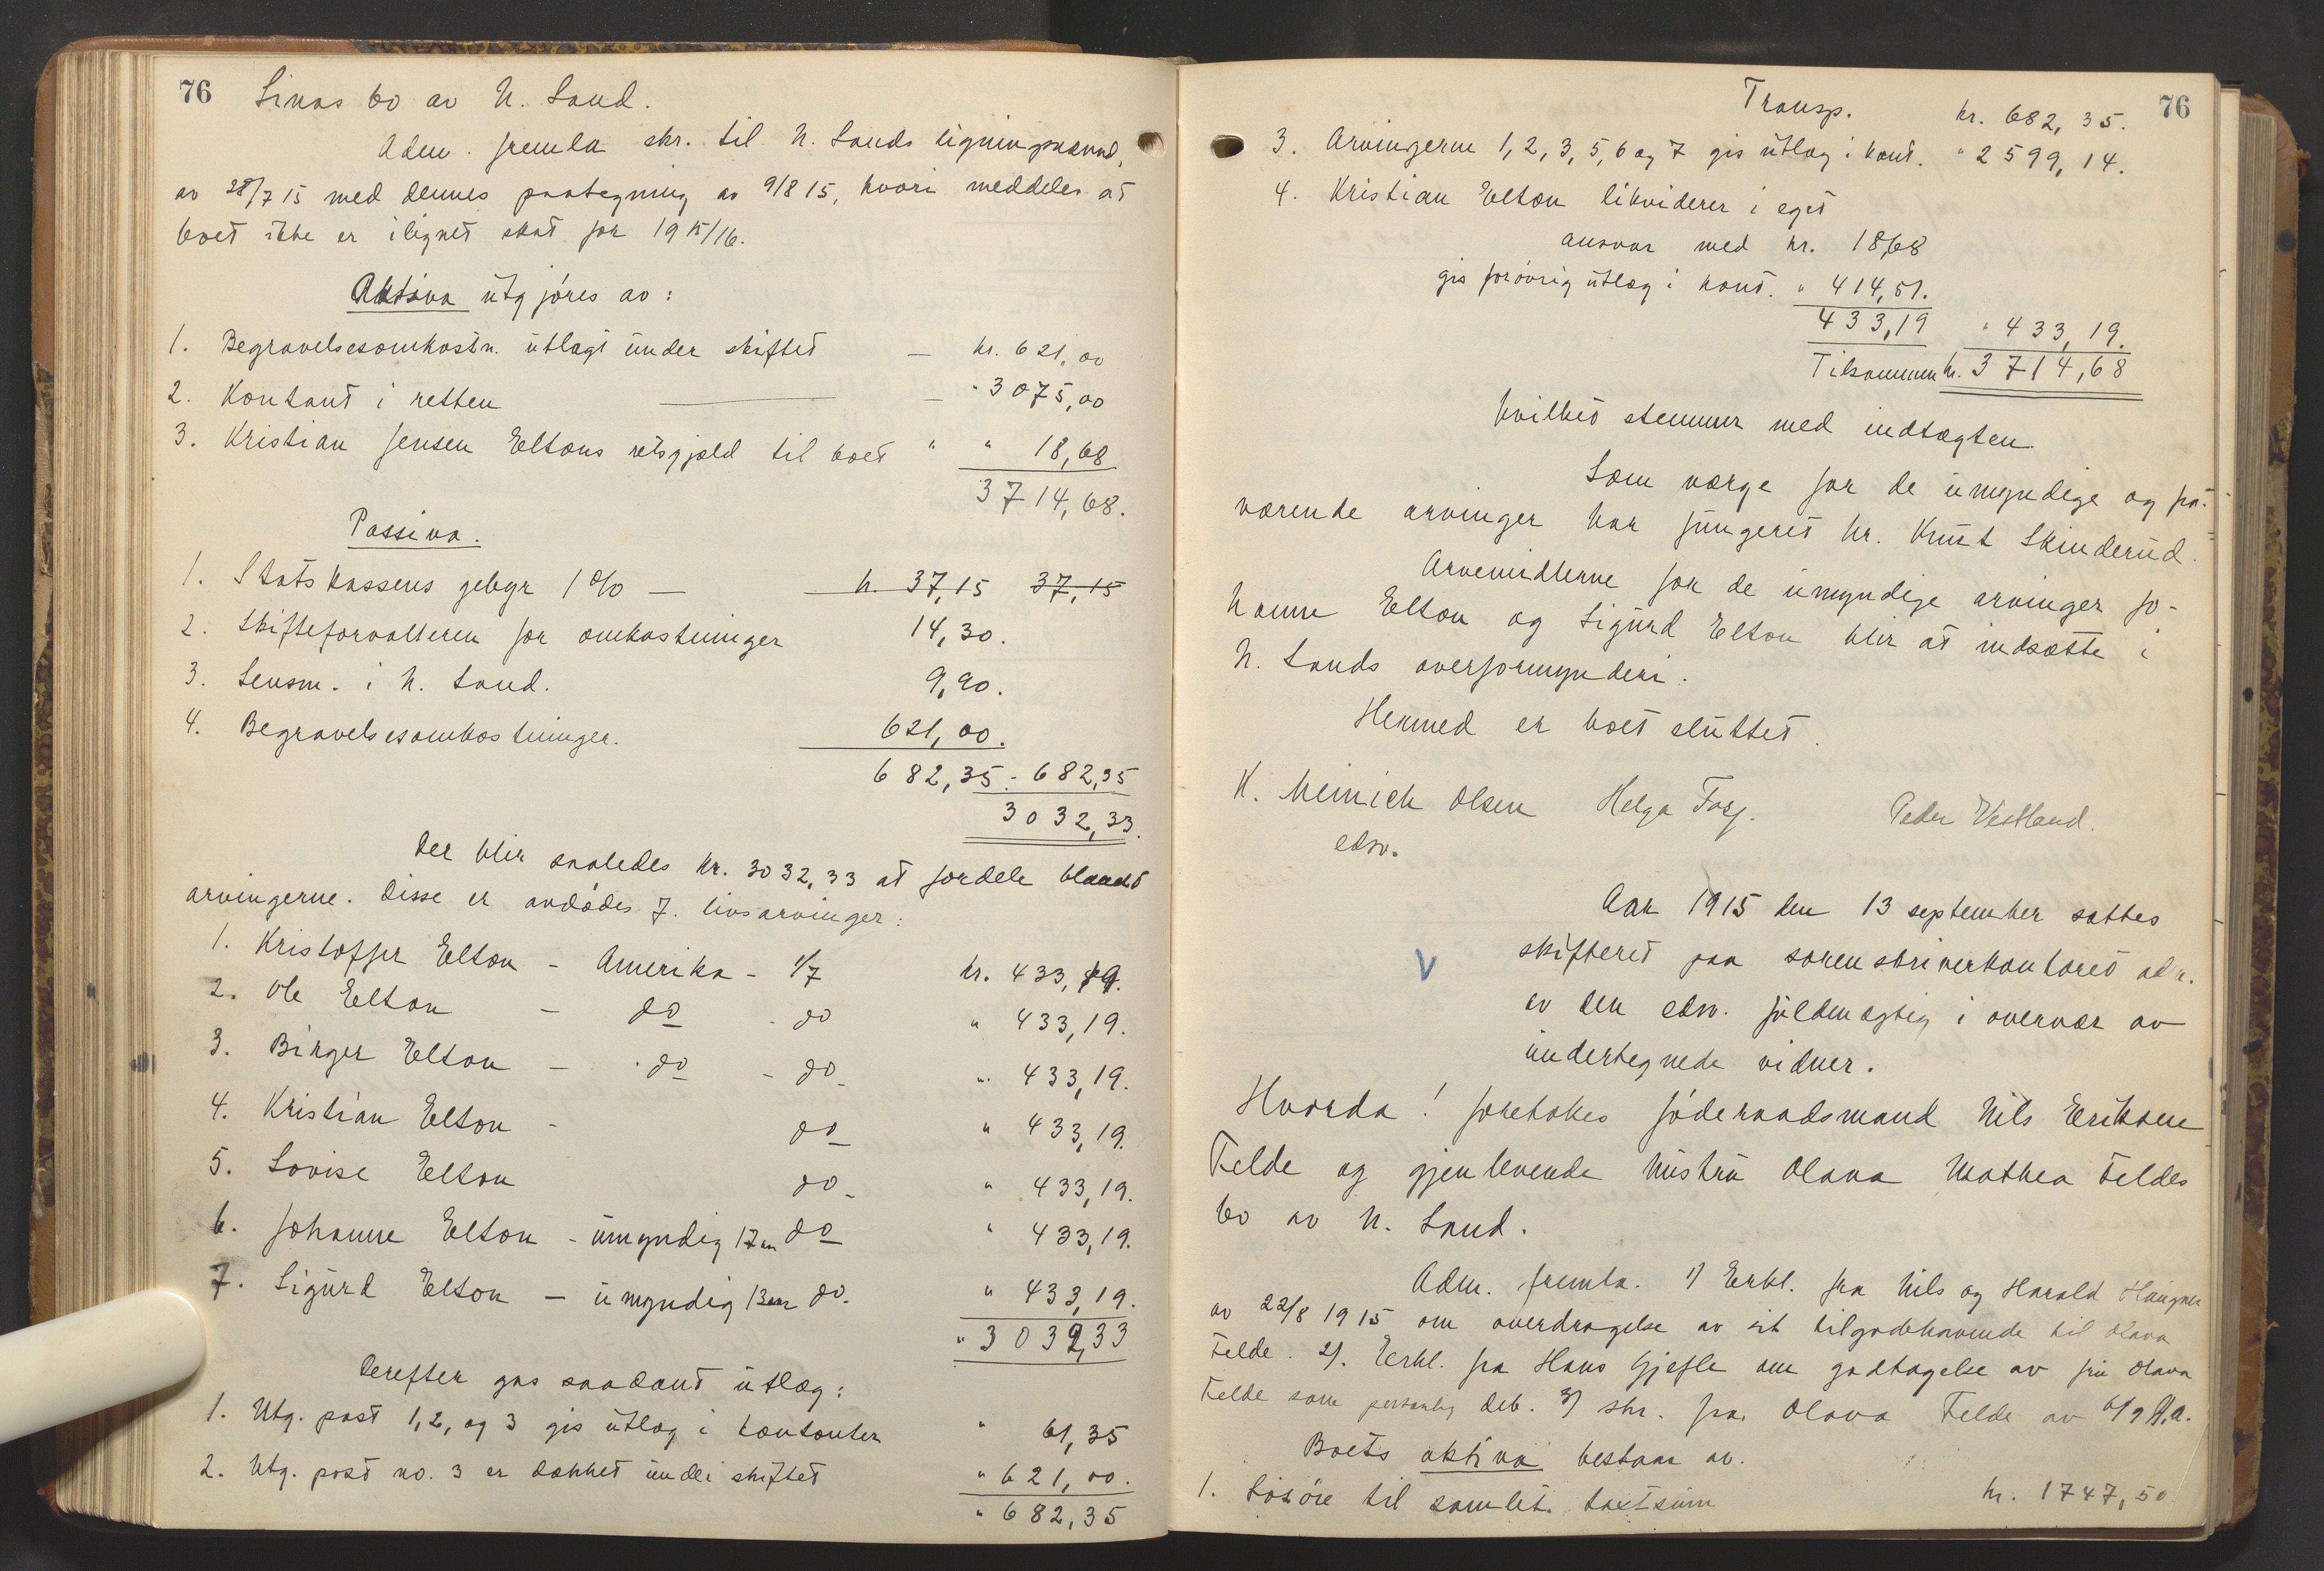 76 Linas bo av N. Land.
Adm. fremla skr. til N. Lands ligningsnævnd,
av 28/7 15 med dennes paategning av 9/8 15, hvori meddeles at
boet ikke er ilignet skat for 1915/16.
Aktiva utgjøres av:
1. Begravelsesomkostn. utlagt under skiftet — kr. 621,00
2. Kontant i retten — " 3075,00
3. Kristian Jensen Eltons retsgjæld til boet " " 18,68
3714,68.
Passiva.
1. Statskassens gebyr 1% — kr. 37,15 37,15
2. Skifteforvalteren for omkostninger 14,30.
3. Lensm. i N. Land. 9,90.
4. Begravelsesomkostninger. 621,00.
682,35 - 682,35
3032,33.
Der blir saaledes kr. 3032,33 at fordele blandt
arvingerne. Disse er avdødes 7. livsarvinger:
1. Kristoffer Elton - Amerika - 1/7 kr. 433,19.
2. Ole Elton - do - do " 433,19.
3. Birger Elton - do - do " 433,19.
4. Kristian Elton - do " 433,19.
5. Lovise Elton do " 433,19.
6. Johanne Elton - umyndig 17 aar do " 433,19.
7. Sigurd Elton - umyndig 13 aar do. " 433,19.
" 3032,33
Derefter gas saadant utlæg:
1. Utg. post 1, 2, og 3 gis utlæg i kontanter " 61,35
2. Utg. post no. 3 er dækket under skiftet " 621,00.
" 682,35
76
Transp. kr. 682,35.
3. Arvingerne 1, 2, 3, 5, 6 og 7 gis utlæg i kont. " 2599,14.
4. Kristian Elton likviderer i eget
ansvar med kr. 18,68
gis forøvrig utlæg i kont. " 414,51.
433,19 " 433,19.
Tilsammen kr. 3714,68
hvilket stemmer med indtægten.
Som værge for de umyndige og fra-
værende arvinger har fungeret hr. Knut Skinderud.
Arvemidlerne for de umyndige arvinger Jo-
hanne Elton og Sigurd Elton blir at indsætte i
N. Lands overformynderi.
Hermed er boet sluttet.
K. Meinich Olsen Helga Peder Vestland.
edsv.
Aar 1915 den 13 september sattes
skifteret paa sorenskriverkontoret adm.
av den edsv. fuldmægtig i overvær av
undertegnede vidner.
V
Hvorda! foretokes føderaadsmand Nils Eriksen
Felde og gjenlevende hustru Olava Mathea Feldes
bo av N. Land.
Adm. fremla. 1) Erkl. fra Nils og Harald
av 22/8 1915 om overdragelse av sit tilgodehavende til Olava
Felde. 2). Erkl. fra Hans Gjefle om godtagelse av fru Olava
Felde som personlig deb. 3) skr. fra Olava Felde av 6/9 d.a.
Boets aktiva bestaar av.
1. Løsøre til samlet taxtsum kr. 1747,50